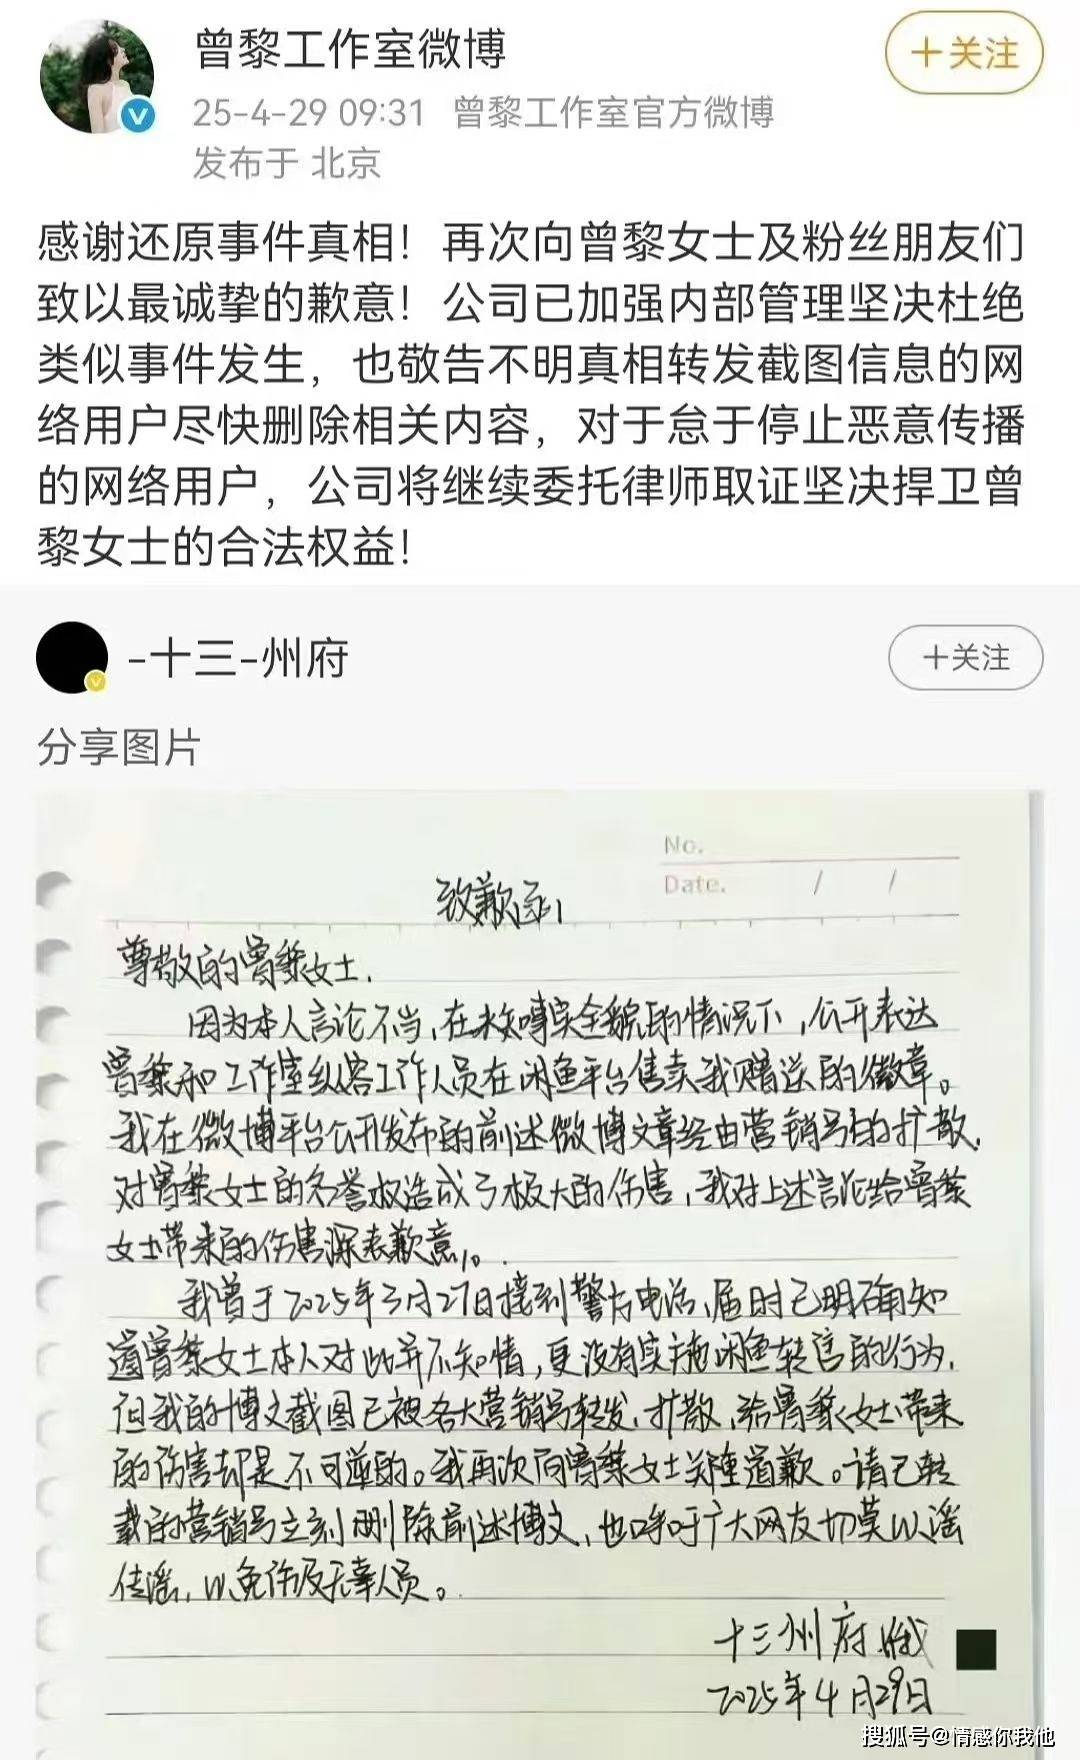 曾黎工作室微博
+关注
25-4-29 09:31 曾黎工作室官方微博
发布于 北京
感谢还原事件真相！再次向曾黎女士及粉丝朋友们
致以最诚挚的歉意！公司已加强内部管理坚决杜绝
类似事件发生，也敬告不明真相转发截图信息的网
络用户尽快删除相关内容，对于怠于停止恶意传播
的网络用户，公司将继续委托律师取证坚决捍卫曾
黎女士的合法权益！
-十三-州府
+关注
分享图片
No.
Date. / /
致歉函
尊敬的曾黎女士,
因为本人言论不当,在未知事实全貌的情况下,公开表达
曾黎和工作室纵容工作人员在闲鱼平台售卖我赠送的徽章。
我在微博平台公开发布的前述微博文章经由营销号的扩散,
对曾黎女士的名誉权造成了极大的伤害,我对上述言论给曾黎
女士带来的伤害深表歉意。
我曾于2025年3月27日接到警方电话,届时已明确知
道曾黎女士本人对此并不知情,更没有实施闲鱼转售的行为,
但我的博文截图已被各大营销号转发,扩散,给曾黎女士带来
的伤害却是不可逆的。我再次向曾黎女士郑重道歉。请已转
载的营销号立刻删除前述博文,也呼吁广大网友切莫以谣
传谣,以免伤及无辜人员。
十三州府
2025年4月29日
搜狐号@情感你我他